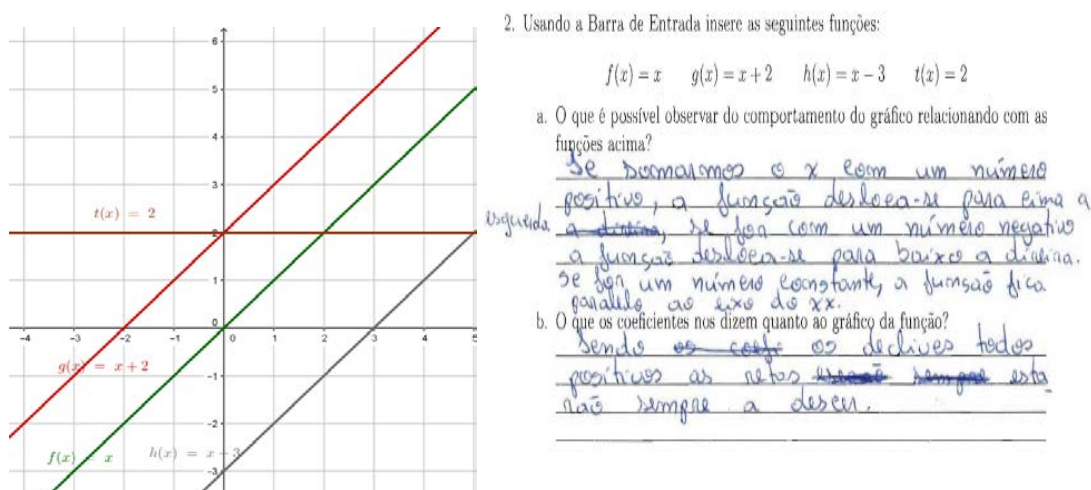 6
5
4
3
t(x) = 2
2
1
0
-4 -3 -2 -1 0 1 2 3 4 5
g(x) = x + 2
-1
-2
f(x) = x
h(x) = x - 3
-3
2. Usando a Barra de Entrada insere as seguintes funções:
f(x) = x g(x) = x + 2 h(x) = x − 3 t(x) = 2
a. O que é possível observar do comportamento do gráfico relacionando com as
funções acima?
Se somarmos o x com um número
positivo, a função desloca-se para cima a
esquerda a direita, se for com um número negativo
a funsão desloca-se para baixo a direira.
Se for um número constante, a funsão fica
paralelo ao eixo do xx.
b. O que os coeficientes nos dizem quanto ao gráfico da função?
Sendo os coefi os declives todos
positivos as retas sempre esta
rão sempre a descer.